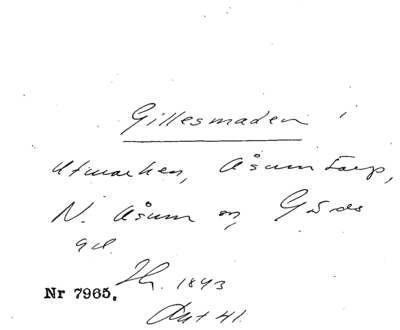 Gillesmaden i
Utmarken, Åsumtorp,
N. Åsum o, Gärds
Nr 7965. 1843
Akt 41.